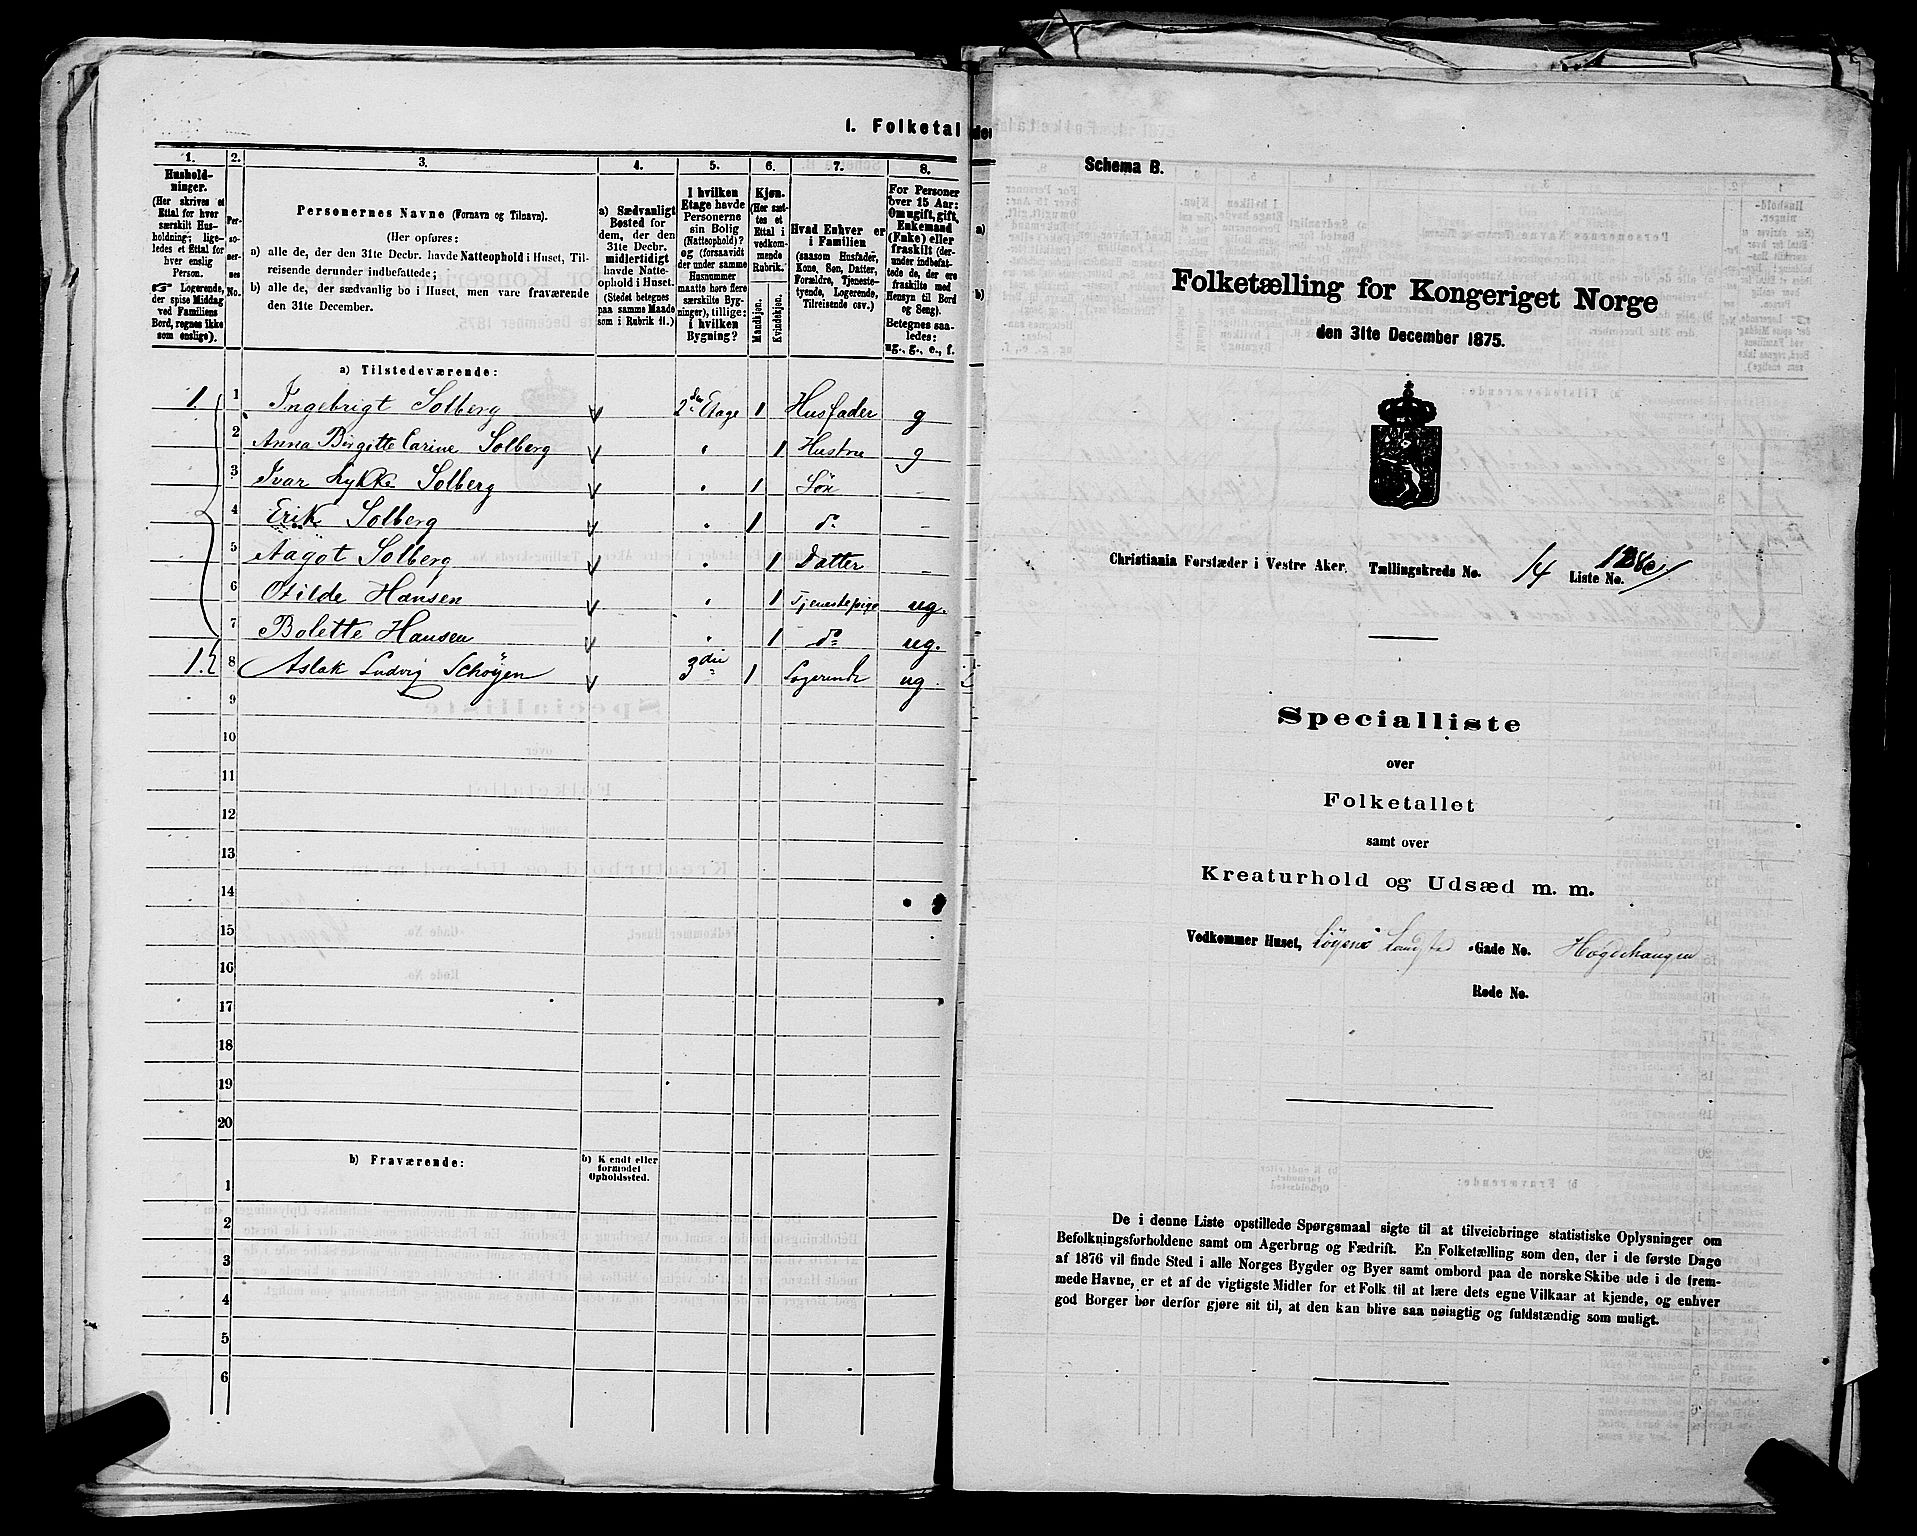 I. Folketal
1. 2. 3. 4. 5. 6. 7. 8.
Hushold-
ninger.
(Her skrives et
Ettal for hver
særskilt Hus-
holdning; lige-
ledes et Ettal for
hver enslig
Person.
☞ Logerende,
der spise Middag
ved Familiens
Bord, regnes ikke
som enslige).
Per-
so-
ner-
nes
No.
Personernes Navne (Fornavn og Tilnavn).
(Her opføres:
a) alle de, der den 31te Decbr. havde Natteophold i Huset, Til-
reisende derunder indbefattede;
b) alle de, der sædvanlig bo i Huset, men vare fraværende
den 31te December.
a) Sædvanligt
Bosted for
dem, der den
31te Decbr.
midlertidigt
havde Natte-
ophold i Huset.
(Stedet betegnes
paa samme Maade
som i Rubrik 11.)
I hvilken
Etage havde
Personerne
sin Bolig
(Natteophold)?
og (forsaavidt
der under samme
Husnummer
maatte høre flere
særskilte Byg-
ninger), tillige:
i hvilken
Bygning?
Kjøn.
(Her sæt-
tes et
Ettal i
vedkom-
mende
Rubrik.)
Mandkjøn.
Kvindekjøn.
Hvad Enhver er
i Familien
(saasom Husfader,
Kone, Søn, Datter,
Forældre, Tjeneste-
tyende, Logerende,
Tilreisende osv.)
For Personer
over 15 Aar:
Om ugift, gift,
Enkemand
(Enke) eller
fraskilt (der-
under indbefat-
tede de, der ere
fraskilte med
Hensyn til Bord
og Seng).
Betegnes saa-
ledes:
ug., g., e., f.
a) Tilstedeværende:
1. 1 Ingebrigt Solberg 2den Etage 1 Husfader g
2 Anna Birgitte Carine Solberg " 1 Hustru g
3 Ivar Lykke Solberg " 1 Søn –
4 Erik Solberg " 1 do –
5 Aagot Solberg " 1 Datter –
6 Otilde Hansen " 1 Tjenestepige ug.
7 Bolette Hansen " 1 do ug.
1. 8 Aslak Ludvig Schøyen 3die 1 Logerende ug
9
10
11
12
13
14
15
16
17
18
19
20
b) Fraværende:
b) Kjendt eller
formodet
Opholdssted.
1
2
3
4
5
6
Schema B.
Folketælling for Kongeriget Norge
den 31te December 1875.
Christiania Forstæder i Vestre Aker. Tællingskreds No. 14 Liste No.
Specialliste
over
Folketallet
samt over
Kreaturhold og Udsæd m. m.
Vedkommer Huset, Gade No. Hægdehaugen
Rode No.
De i denne Liste opstillede Spørgsmaal sigte til at tilveiebringe statistiske Oplysninger om
Befolkningsforholdene samt om Agerbrug og Fædrift. En Folketælling som den, der i de første Dage
af 1876 vil finde Sted i alle Norges Bygder og Byer samt ombord paa de norske Skibe ude i de frem-
mede Havne, er et af de vigtigste Midler for et Folk til at lære dets egne Vilkaar at kjende, og enhver
god Borger bør derfor gjøre sit til, at den kan blive saa nøiagtig og fuldstændig som muligt.